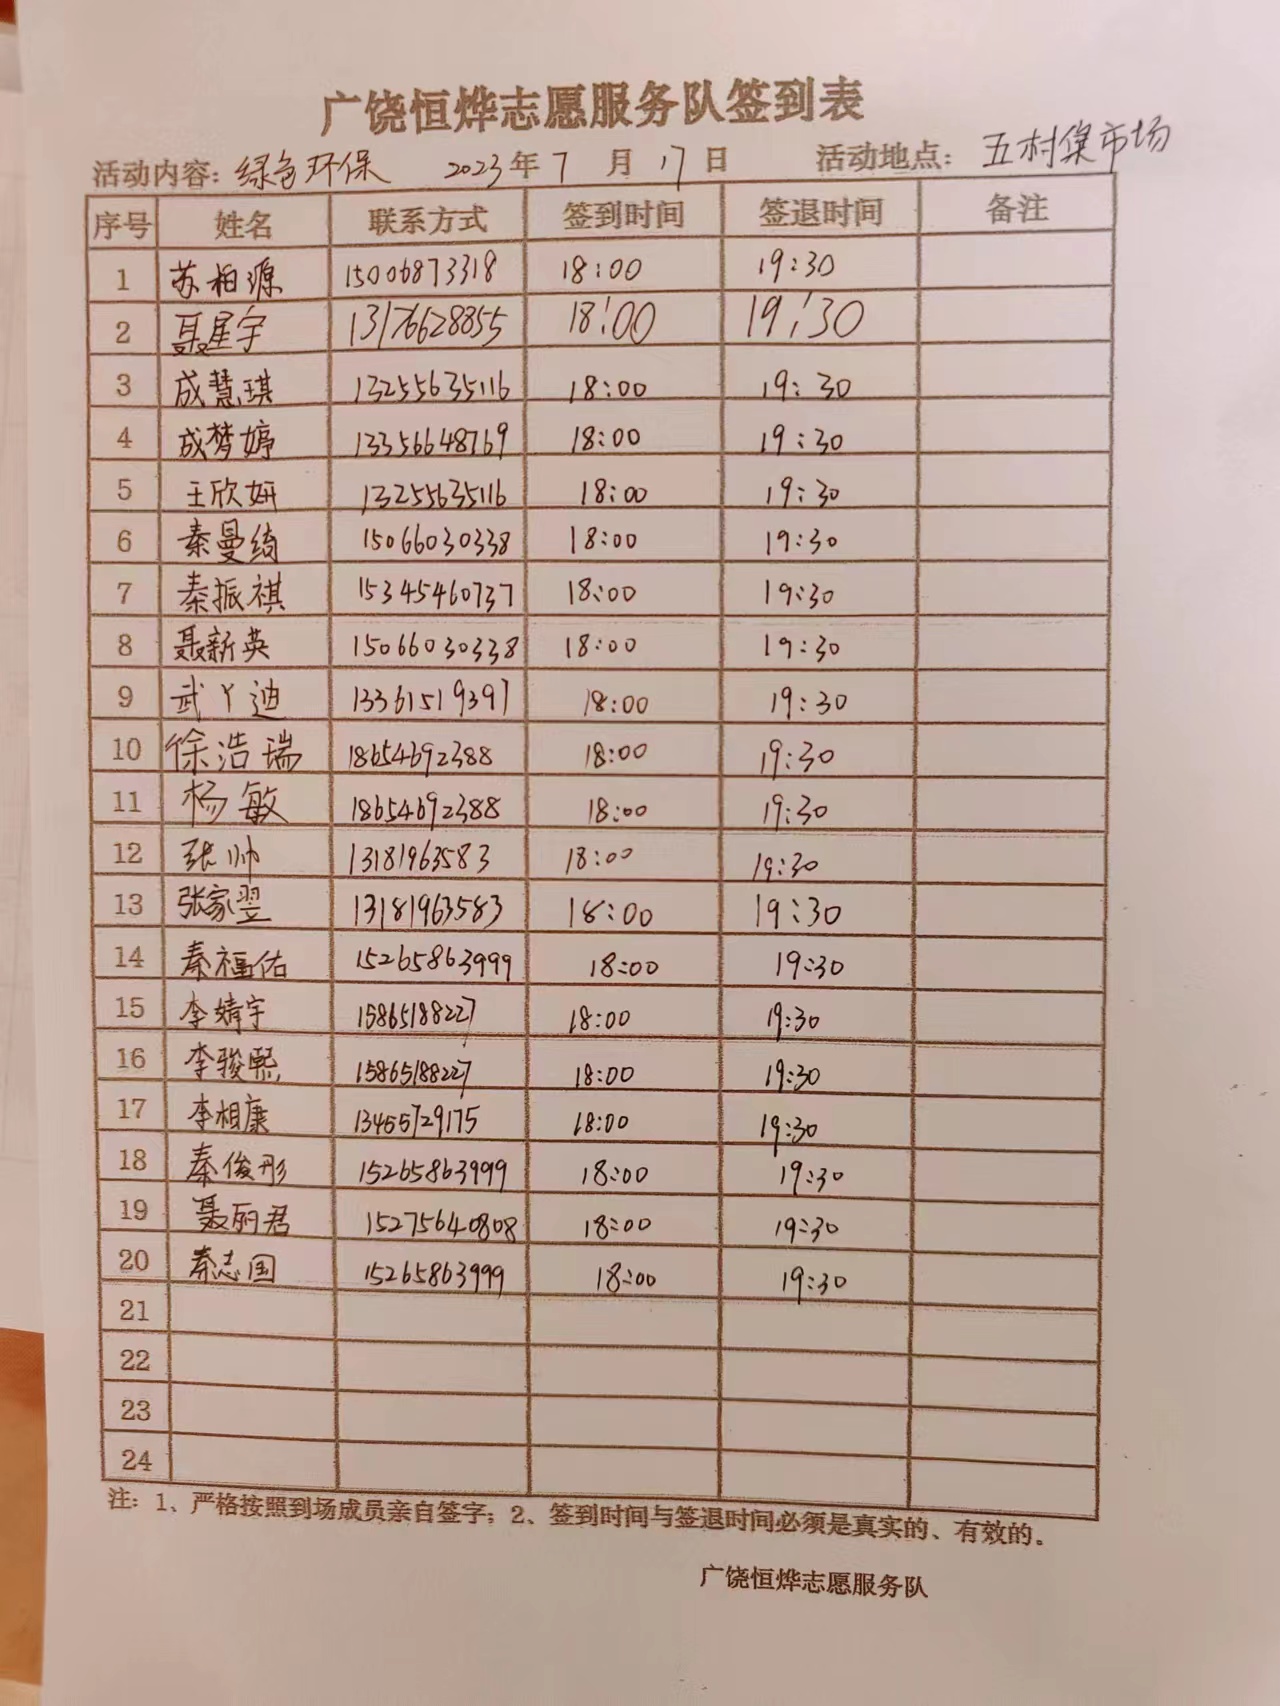 广饶恒烨志愿服务队签到表
活动内容：绿色环保 2023年7月17日 活动地点：五村集市场
序号 姓名 联系方式 签到时间 签退时间 备注
1 苏柏源 15006873318 18:00 19:30
2 聂星宇 13176628855 18:00 19:30
3 成慧琪 13255635116 18:00 19:30
4 成梦婷 13356648769 18:00 19:30
5 王欣妍 13255635116 18:00 19:30
6 秦曼绮 15066030338 18:00 19:30
7 秦振祺 15345460737 18:00 19:30
8 聂新英 15066030338 18:00 19:30
9 武丫迪 13361519397 18:00 19:30
10 徐浩瑞 18654692388 18:00 19:30
11 杨敏 18654692388 18:00 19:30
12 张帅 13181963583 18:00 19:30
13 张家翌 13181963583 18:00 19:30
14 秦福佑 15265863999 18:00 19:30
15 李婧宇 15865188227 18:00 19:30
16 李骏熙 15865188227 18:00 19:30
17 李相康 13455729175 18:00 19:30
18 秦俊彤 15265863999 18:00 19:30
19 聂丽君 15275640808 18:00 19:30
20 秦志国 15265863999 18:00 19:30
21
22
23
24
注：1、严格按照到场成员亲自签字；2、签到时间与签退时间必须是真实的、有效的。
广饶恒烨志愿服务队